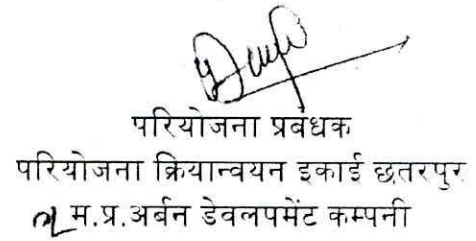 परियोजना प्रबंधक
परियोजना क्रियान्वयन इकाई छतरपुर
म.प्र.अर्बन डेवलपमेंट कम्पनी